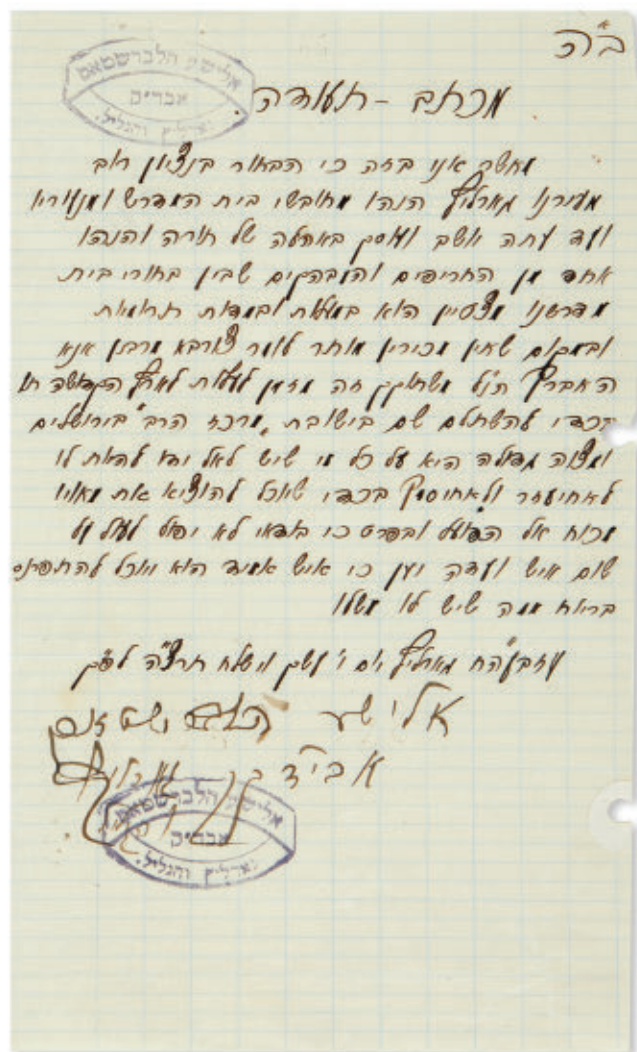 ב"ה
אלישע הלברשטאט
אבדק
גארליץ והגליל.
מכתב - תעודה.
מאשר אני בזה כי הבחור בנציון רוב
מעירנו גארליץ הנהו מחובשי בית המדרש ומנעוריו
ועד עתה יושב ועוסק באהלה של תורה והנהו
אחד מן החריפים והמובהקים שבין בחורי בית
מדרשנו מצטיין הוא במעלות ובמדות תרומיות
ובמקום שאין מכירין מותר לומר צורבא מרבנן אנא
האברך הנ"ל משתוקק זה מזמן לעלות לארץ הקדושה
בכדי להשתלם שם בישיבת "מרכז הרב" בירושלים
ומצוה גדולה היא על כל מי שיש לאל ידו להיות לו
לאחיעזר ולאחיסמך בכדי שיוכל להוציא את מאויו
מכוח אל הפועל ובפרט כי בודאי לא יפול לעול על
שום איש ועדה יען כי איש אמיד הוא ויוכל להתפרנס
בריוח ממה שיש לו משלו
עזבע"הח גארליץ יום ו' עשק וישלח תרצ"ה לפ"ק
אלישע הלברשטאט
אבי"ד גארליץ
אלישע הלברשטאט
אבדק
גארליץ והגליל.